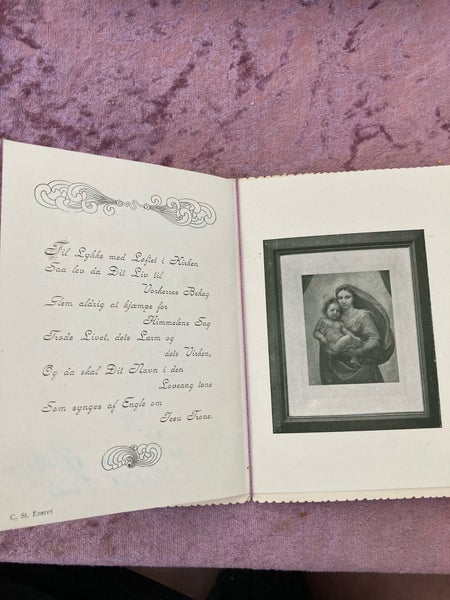 Til Lykke med Løftet i Kirken
Saa lev da Dit Liv til
Vorherres Behag
Glem aldrig at kjæmpe for
Himmelens Sag
Trods Livet, dets Larm og
dets Virken,
Og da skal Dit Navn i den
Lovsang tone
Som synges af Engle om
Jesu Trone.
C. St. Eneret